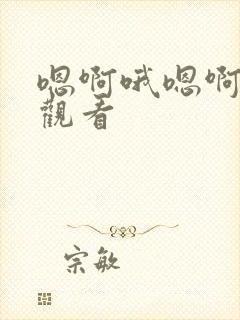 嗯啊哦嗯啊
觀看
宗敏